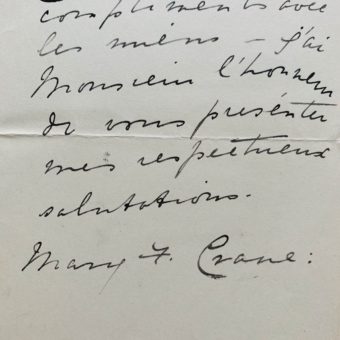 compliments avec
les miens – j'ai
Monsieur l'honneur
de vous présenter
mes respectueux
salutations.
Mary F. Crane: